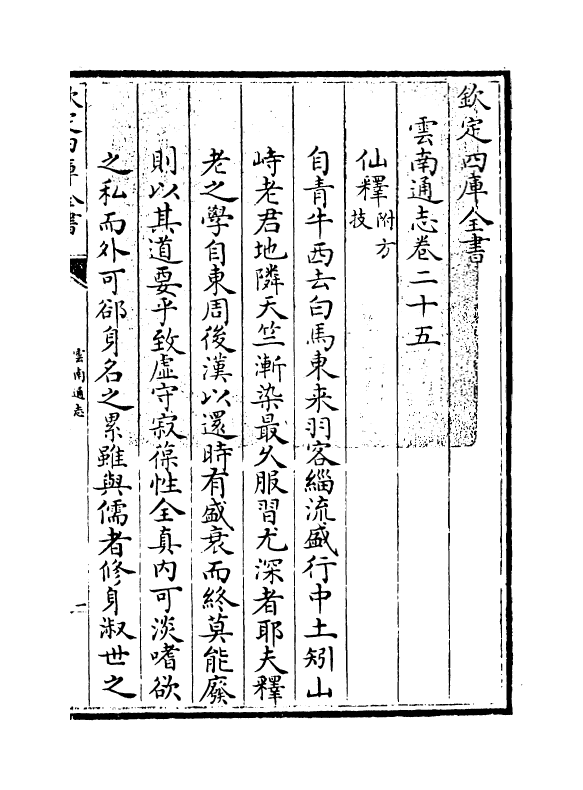 欽定四庫全書
雲南通志卷二十五
仙釋附方技
自青牛西去白馬東来羽客緇流盛行中土矧山
峙老君地隣天竺漸染最久服習尤深者耶夫釋
老之學自東周後漢以還時有盛衰而終莫能廢
則以其道要乎致虚守寂葆性全真内可淡嗜欲
之私而外可郤身名之累雖與儒者修身淑世之
欽定四庫全書
雲南通志
一